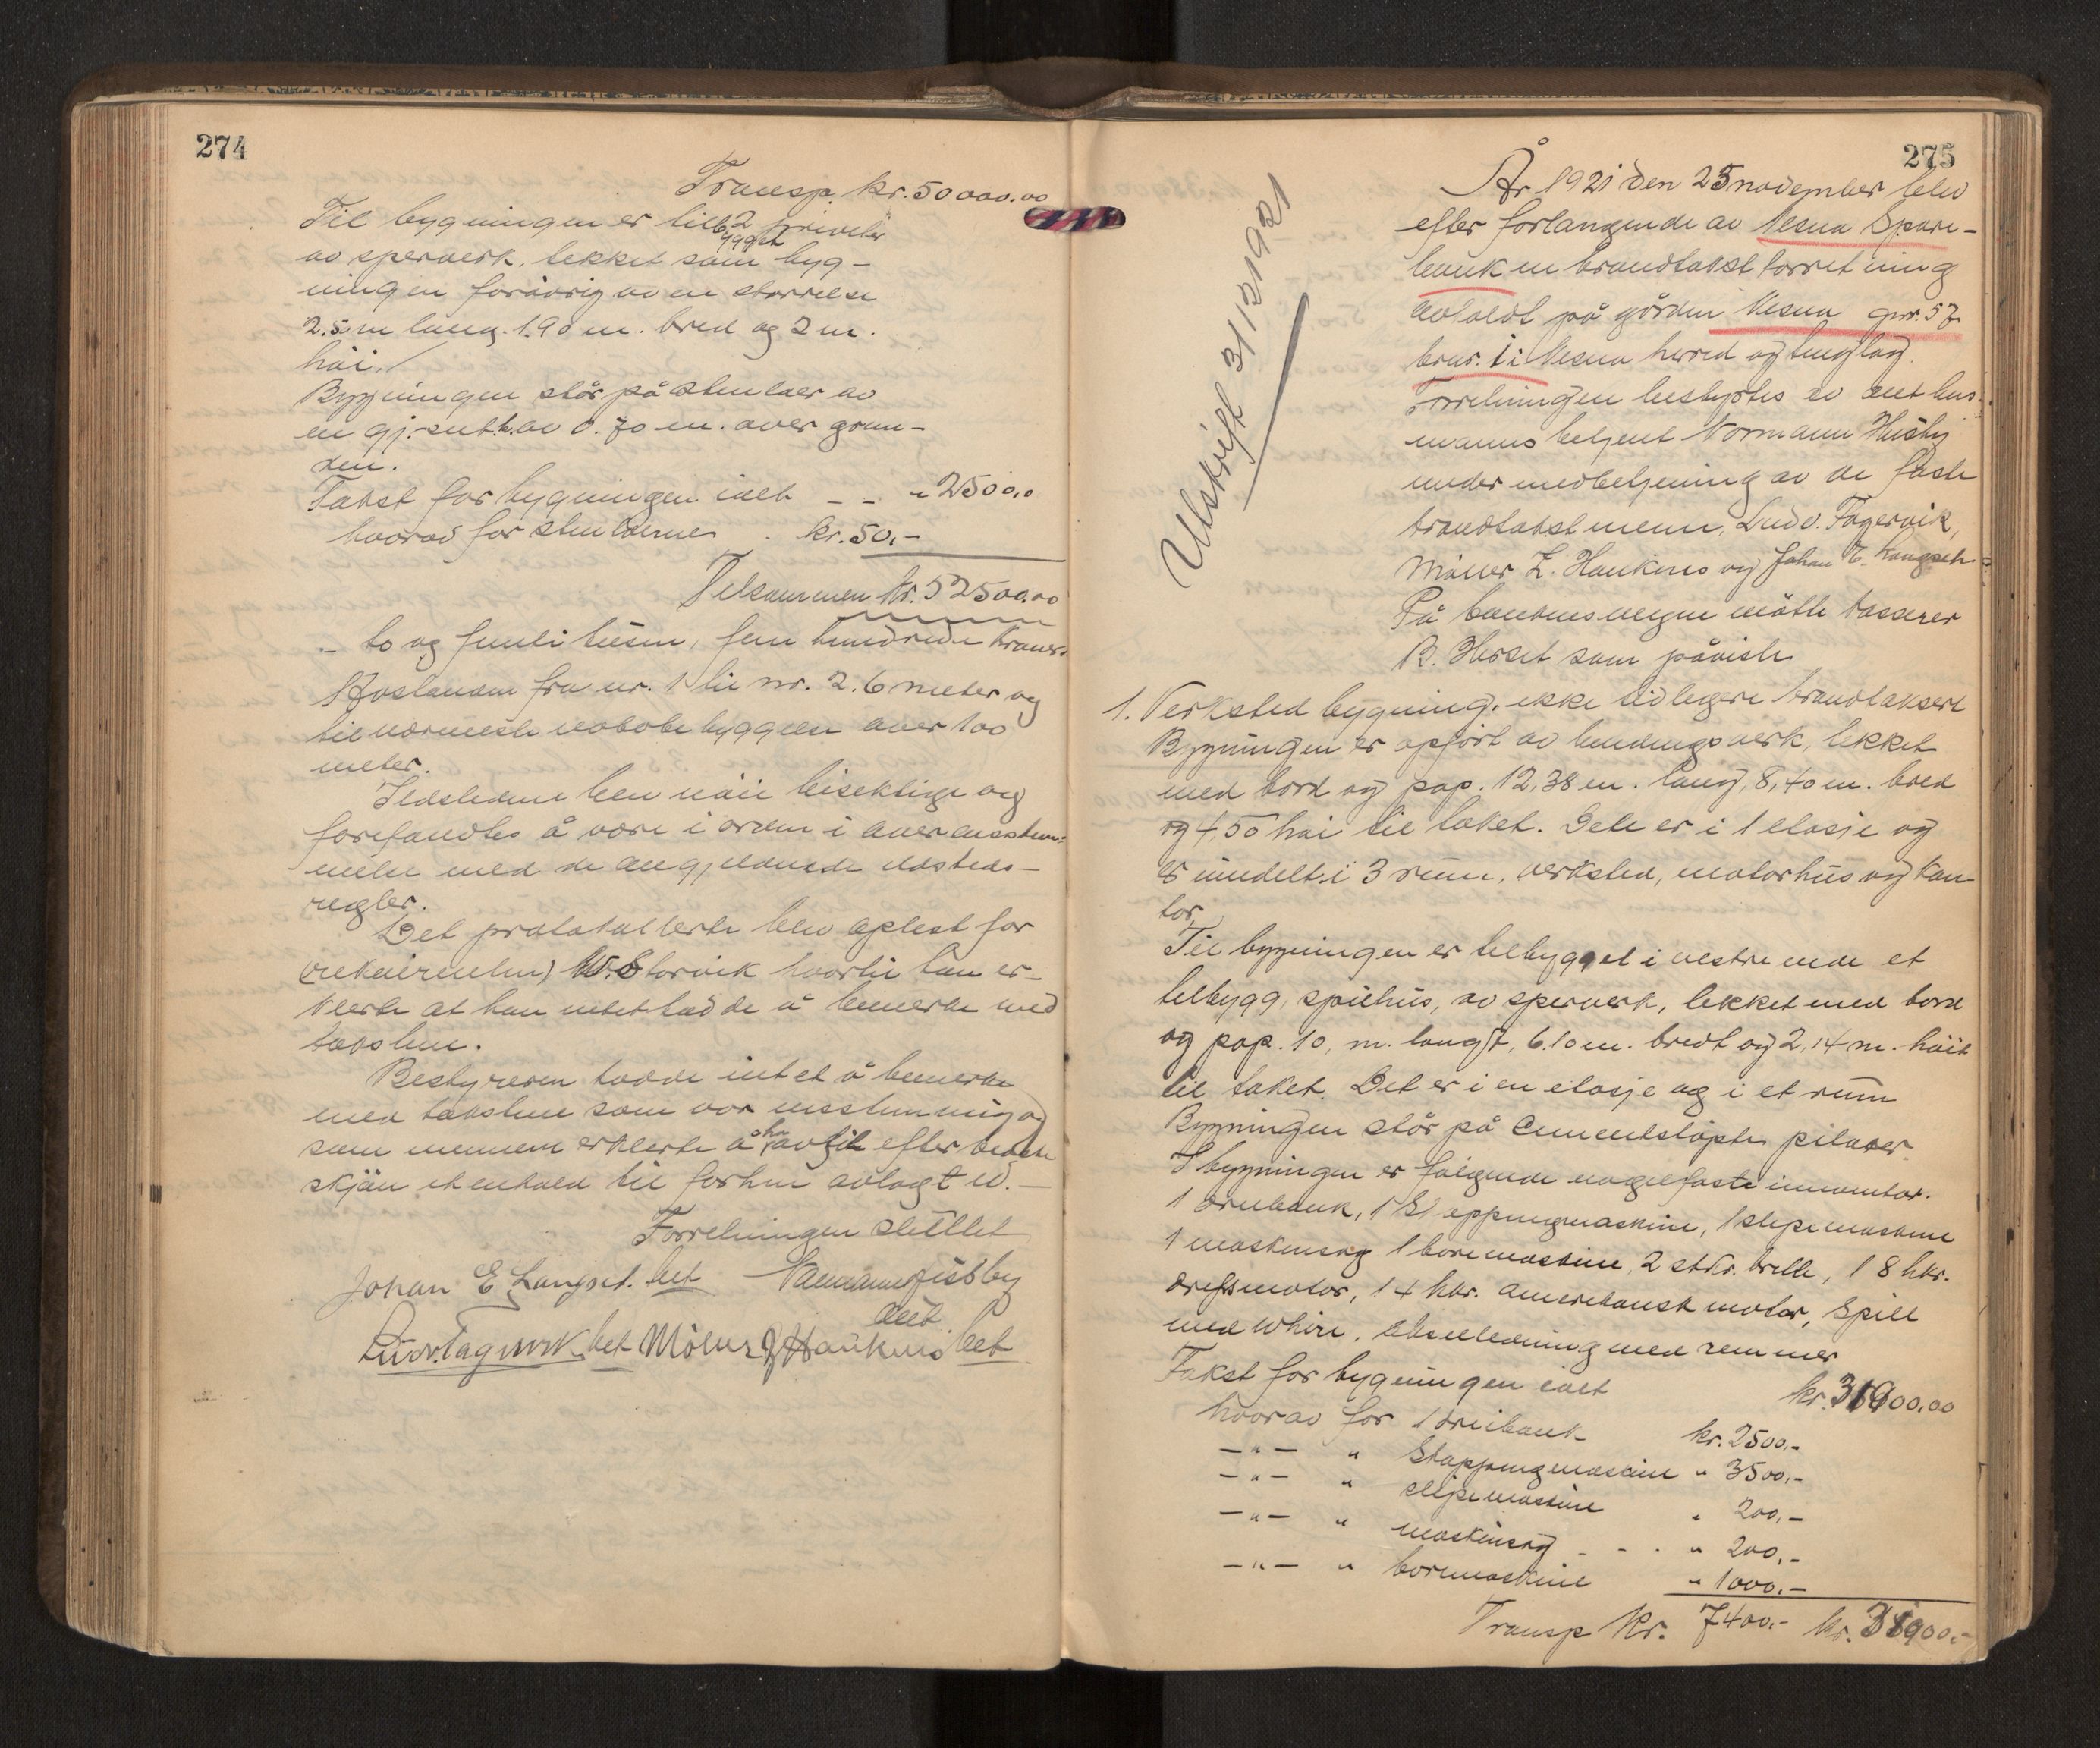 274
Transp. kr. 50000.00
Til bygningen er tilbygget 2 priveter
av sperverk, tekket som byg-
ningen forøvrig av en størrelse
2.5 m lang. 1.90 m. bred og 2 m.
høi.
Bygningen står på stenlaer av
en gj.snit.h. av 0.70 m. over grun-
den.
Takst for bygningen ialt - - " 2500,0
hvorav for stenlaerne . kr. 50,-
Tilsammen kr. 52500.00
- to og femti tusen, fem hundrede kroner.
Avstanden fra nr. 1 til nr. 2. 6 meter og
til nærmeste nabobebyggelse over 100
meter.
Ildstedene blev nøie besiktiget og
forefandtes å være i orden i overensstem-
melse med de angjeldende ildsteds-
regler.
Det protokollerte blev oplest for
(rekvirenten) W. Storvik hvortil han er-
klerte at han intet hadde å bemerke ved
taksten.
Bestyreren hadde intet å bemerke
med taksten som var enstemmig og
som mennene erklerte å ha avgit efter beste
skjøn i henhold til forhen avlagt ed. -
Forretningen sluttet
Johan E Langset. bet Normann Husby
aut
Ludv. Fagervik bet Møller Z Haukenes bet
275
Utskrift 3/12 1921
År 1921 den 25 november blev
efter forlangende av Nesna Spare-
bank en brandtakstforretning
avholdt på gården Nesna gnr. 57
brnr. 1 i Nesna herred og tinglag.
Forretningen bestyrtes av lens-
manns betjent Normann Husby
under medbetjening av de faste
brandtakstmenn, Ludv. Fagervik,
Møller Z. Haukenes og Johan E. Langseth.
På bankens vegne møtte kasserer
B. Horset som påviste
1. Verksted bygning. ikke tidligere brandtaksert
Bygningen er opført av bindingsverk, tekket
med bord og pap. 12,38 m. lang, 8,40 m. bred
og 4,50 høi til taket. Dette er i 1 etasje og
er inndelt i 3 rum, verksted, motorhus og kon-
tor.
Til bygningen er tilbygget i vestre ende et
tilbygg, spilhus, av sperverk, tekket med bord
og pap. 10, m. langt, 6.10 m. bredt og 2,14 m. høit
til taket. Det er i en etasje og i et rum
Bygningen står på cementstøpte pilarer
I bygningen er følgende nagelfaste inventar.
1 dreibank, 1 Støppingmaskine, 1 slipemaskine
1 maskinsag 1 boremaskine, 2 stkr. , 1 8 hkr.
drifsmotor, 1 4 hkr. amerikansk motor, Spill
med , akselledning med remmer
Takst for bygningen ialt kr. 31900,00
hvorav for 1 dreibank kr. 2500.-
-"- " Støppingmaskine " 3500,-
-"- " slipemaskine " 200,-
-"- " maskinsag - - . " 200,-
-"- " boremaskine " 1000.-
Transp kr. 7400.- kr. 31900.-